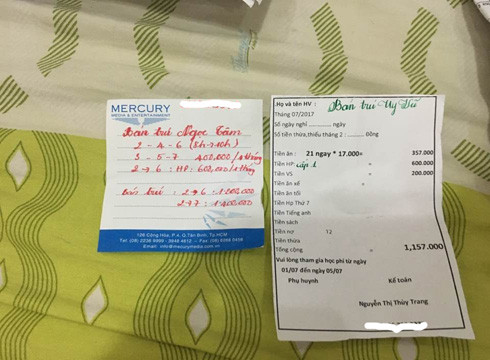 MERCURY
MEDIA & ENTERTAINMENT
Bán trú Ngọc Tâm
2 - 4 - 6 (8h → 10h)
3 - 5 - 7 400,000/1 tháng
2 → 6 : HP: 600,000/1 tháng
Bán trú : 2 → 6 : 1.200.000
2 → 7 : 1.400.000
Email: info@mercurymedia.com.vn
Họ và tên HV : Bán trú
Tháng 07/2017
Số ngày nghỉ ............. ngày
Số tiền thừa,thiếu tháng 2 : .......... Đồng
Tiền ăn : 21 ngay * 17.000= 357.000
Tiền HP: cấp 1 = 600.000
Tiền VS = 200.000
Tiền ăn xế =
Tiền ăn tối
Tiền Hp Thứ 7
Tiền Tiếng anh
Tiền sách
Tiền nợ T2
Tiền thừa
Tổng cộng = 1,157.000
Vui lòng tham gia học phí từ ngày
01/07 đến ngày 05/07
Phụ huynh Kế toán
Nguyễn Thị Thùy Trang